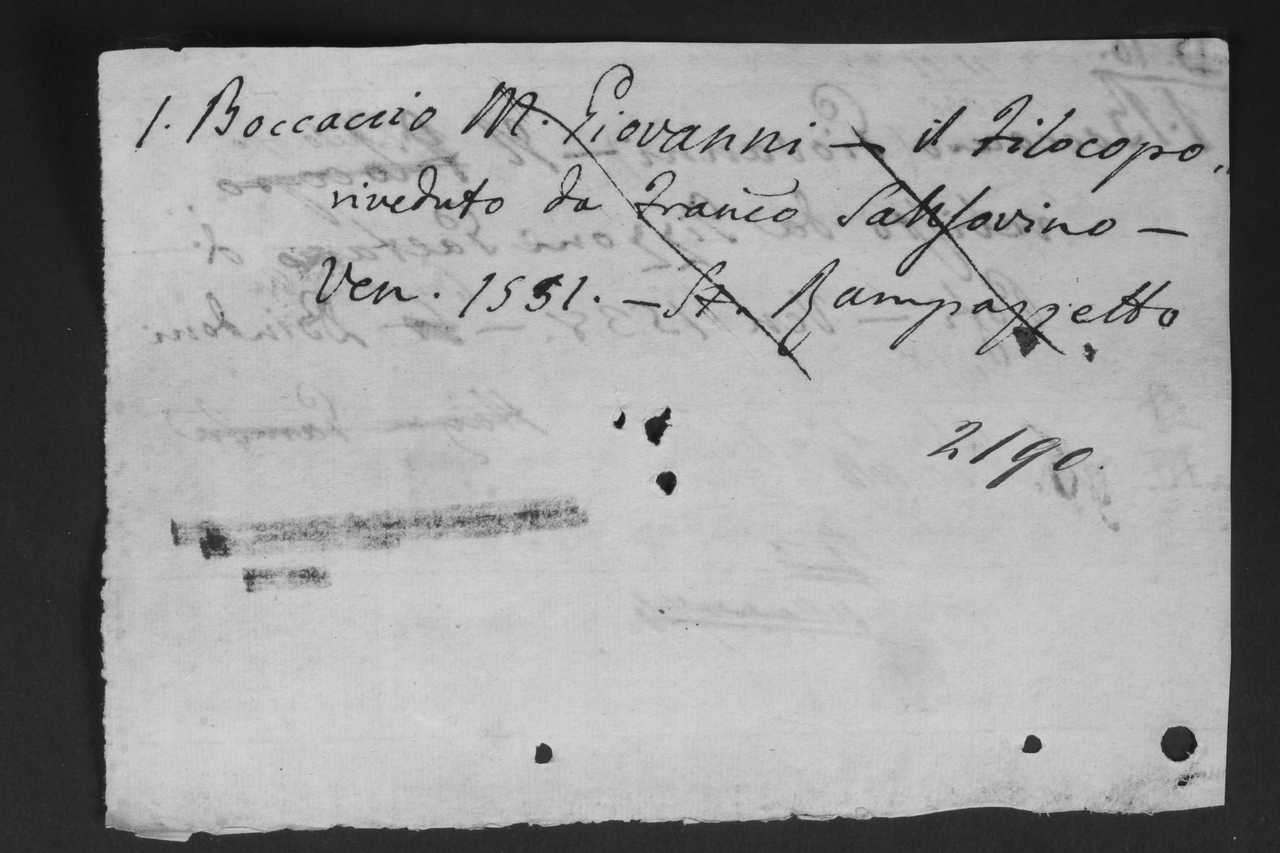 1. Boccaccio M. Giovanni — il Filocopo,
riveduto da Franco Sansovino —
Ven. 1551. — St. Rampazzetto
2190.